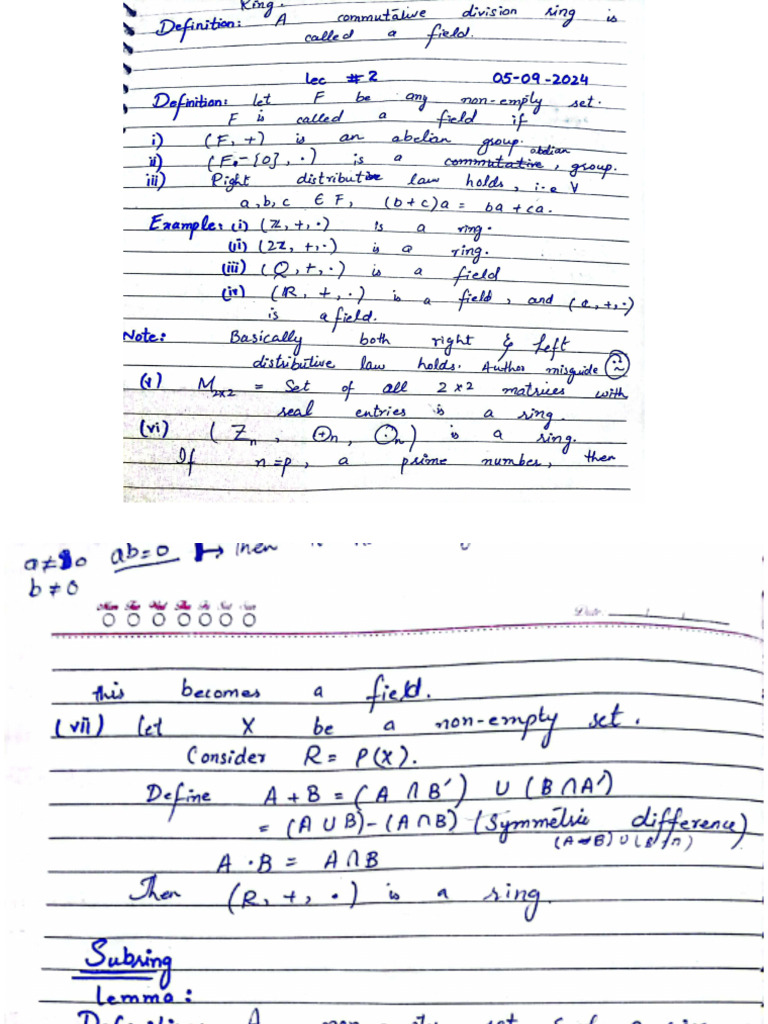 Ring.
Definition: A commutative division ring is
called a field.
lec #2 05-09-2024
Definition: let F be any non-empty set.
F is called a field if
i) (F, +) is an abelian group.
abelian
ii) (F-{0}, ·) is a commutative, group.
iii) Right distributive law holds, i.e ∀
a, b, c ∈ F, (b+c)a = ba + ca.
Example: (i) (Z, +, ·) is a ring.
(ii) (2Z, +, ·) is a ring.
(iii) (Q, +, ·) is a field
(iv) (R, +, ·) is a field, and (C, +, ·)
is a field.
Note: Basically both right & left
distributive law holds. Author misguide
(v) M2x2 = Set of all 2x2 matrices with
real entries is a ring.
(vi) (Zn, ⊕n, ⊙n) is a ring.
If n=p, a prime number, then
a≠0 ab=0 Then
b≠0
Mon Tue Wed Thu Fri Sat Sun Date:
this becomes a field.
(vii) let X be a non-empty set.
Consider R = P(X).
Define A + B = (A ∩ B') ∪ (B ∩ A')
= (A ∪ B) - (A ∩ B) (Symmetric difference)
A · B = A ∩ B
Then (R, +, ·) is a ring.
Subring
Lemma:
Definition: A non-empty set S of a ring